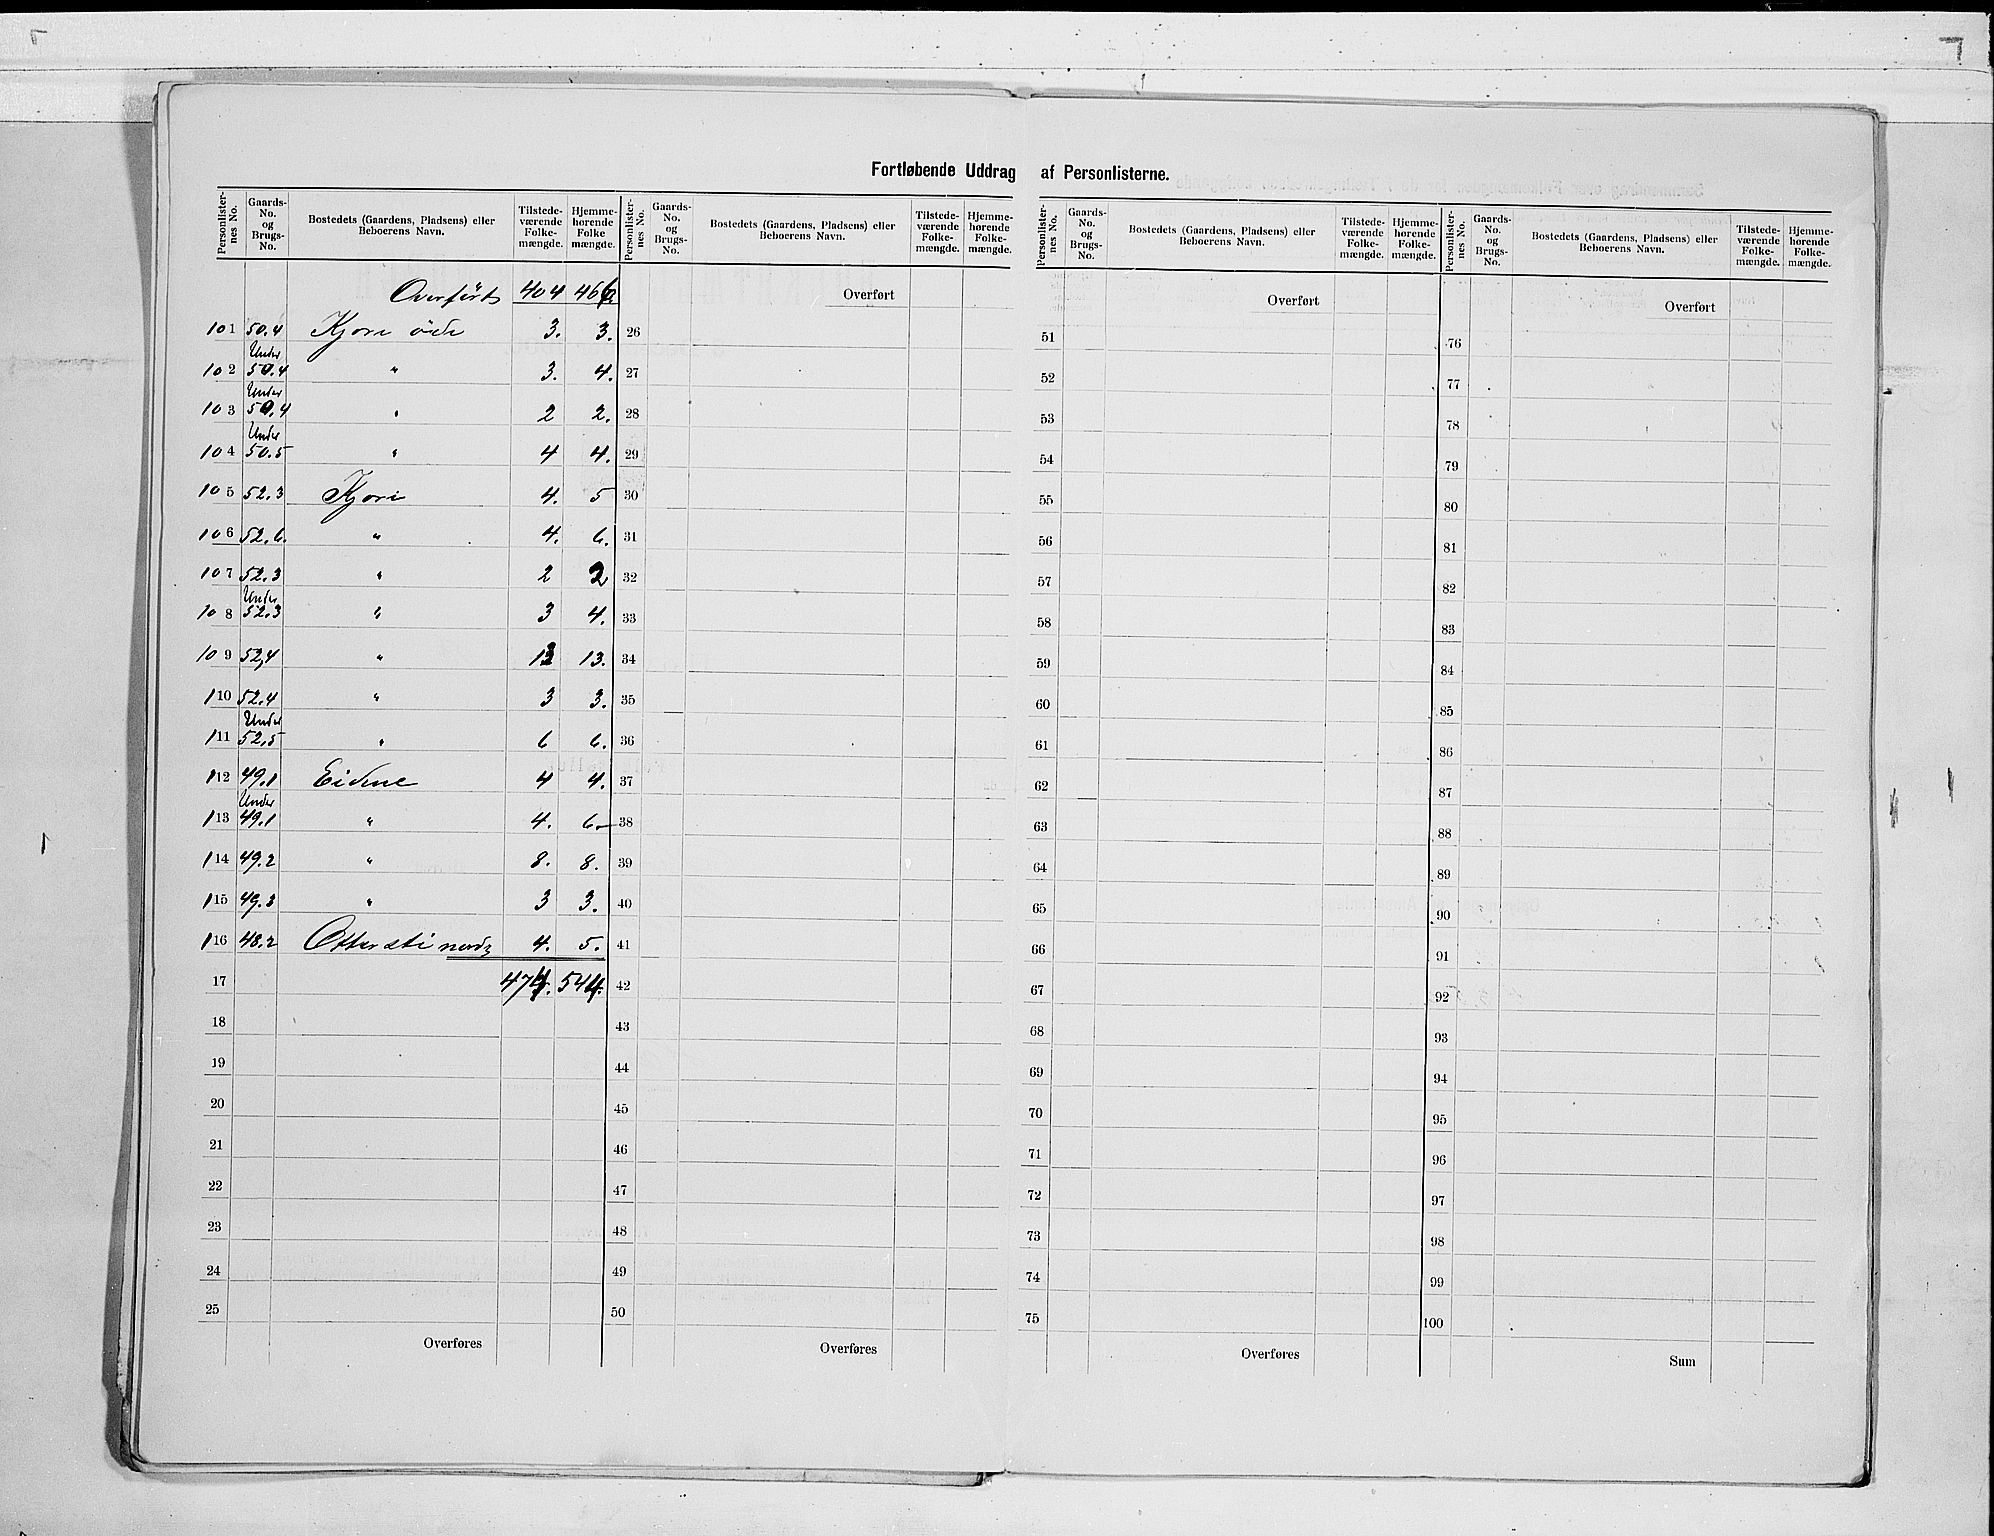 Fortløbende Uddrag af Personlisterne.
Personlister-nes No. | Gaards-No. og Brugs-No. | Bostedets (Gaardens, Pladsens) eller Beboerens Navn. | Tilstede-værende Folke-mængde. | Hjemme-hørende Folke mængde.
Overført 404 466
101 50.4 Kjore öde 3. 3.
102 Under 50.4 " 3. 4.
103 Under 50.4 " 2 2.
104 Under 50.5 " 4 4.
105 52.3 Kjore 4. 5
106 52.6. " 4. 6.
107 52.3 " 2 2
108 Under 52.3 " 3 4.
109 52,4 " 13 13.
110 52.4 " 3 3.
111 Under 52,5 " 6 6.
112 49.1 Eidene 4 4.
113 Under 49.1 " 4. 6.
114 49.2 " 8. 8.
115 49.3 " 3 3.
116 48.2 Ottersti nordr 4. 5.
17 474. 544.
18
19
20
21
22
23
24
25
Overføres
Personlister-nes No. | Gaards-No. og Brugs-No. | Bostedets (Gaardens, Pladsens) eller Beboerens Navn. | Tilstede-værende Folke-mængde. | Hjemme-hørende Folke-mængde.
Overført
26
27
28
29
30
31
32
33
34
35
36
37
38
39
40
41
42
43
44
45
46
47
48
49
50
Overføres
Personlister-nes No. | Gaards-No. og Brugs-No. | Bostedets (Gaardens, Pladsens) eller Beboerens Navn. | Tilstede-værende Folke-mængde. | Hjemme-hørende Folke-mængde.
Overført
51
52
53
54
55
56
57
58
59
60
61
62
63
64
65
66
67
68
69
70
71
72
73
74
75
Overføres
Personlister-nes No. | Gaards-No. og Brugs-No. | Bostedets (Gaardens, Pladsens) eller Beboerens Navn. | Tilstede-værende Folke-mængde. | Hjemme-hørende Folke-mængde.
Overført
76
77
78
79
80
81
82
83
84
85
86
87
88
89
90
91
92
93
94
95
96
97
98
99
100
Sum